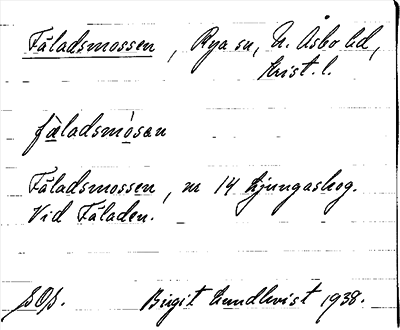 Fäladsmossen, Rya sn, N. Åsbo hd,
Krist. l.
fäladsmósen
Fäladsmossen, m 14 Ljungaskog.
Vid Fäladen.
Birgit Lundkvist 1938.